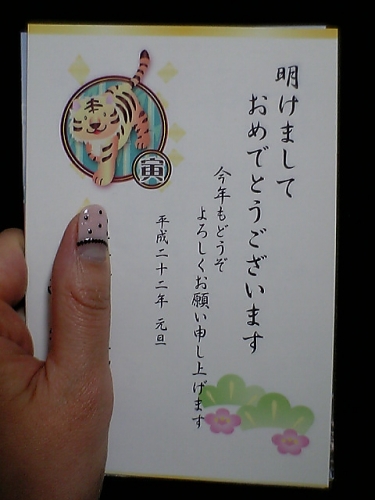 明けまして
おめでとうございます
今年もどうぞ
よろしくお願い申し上げます
平成二十二年 元旦
寅